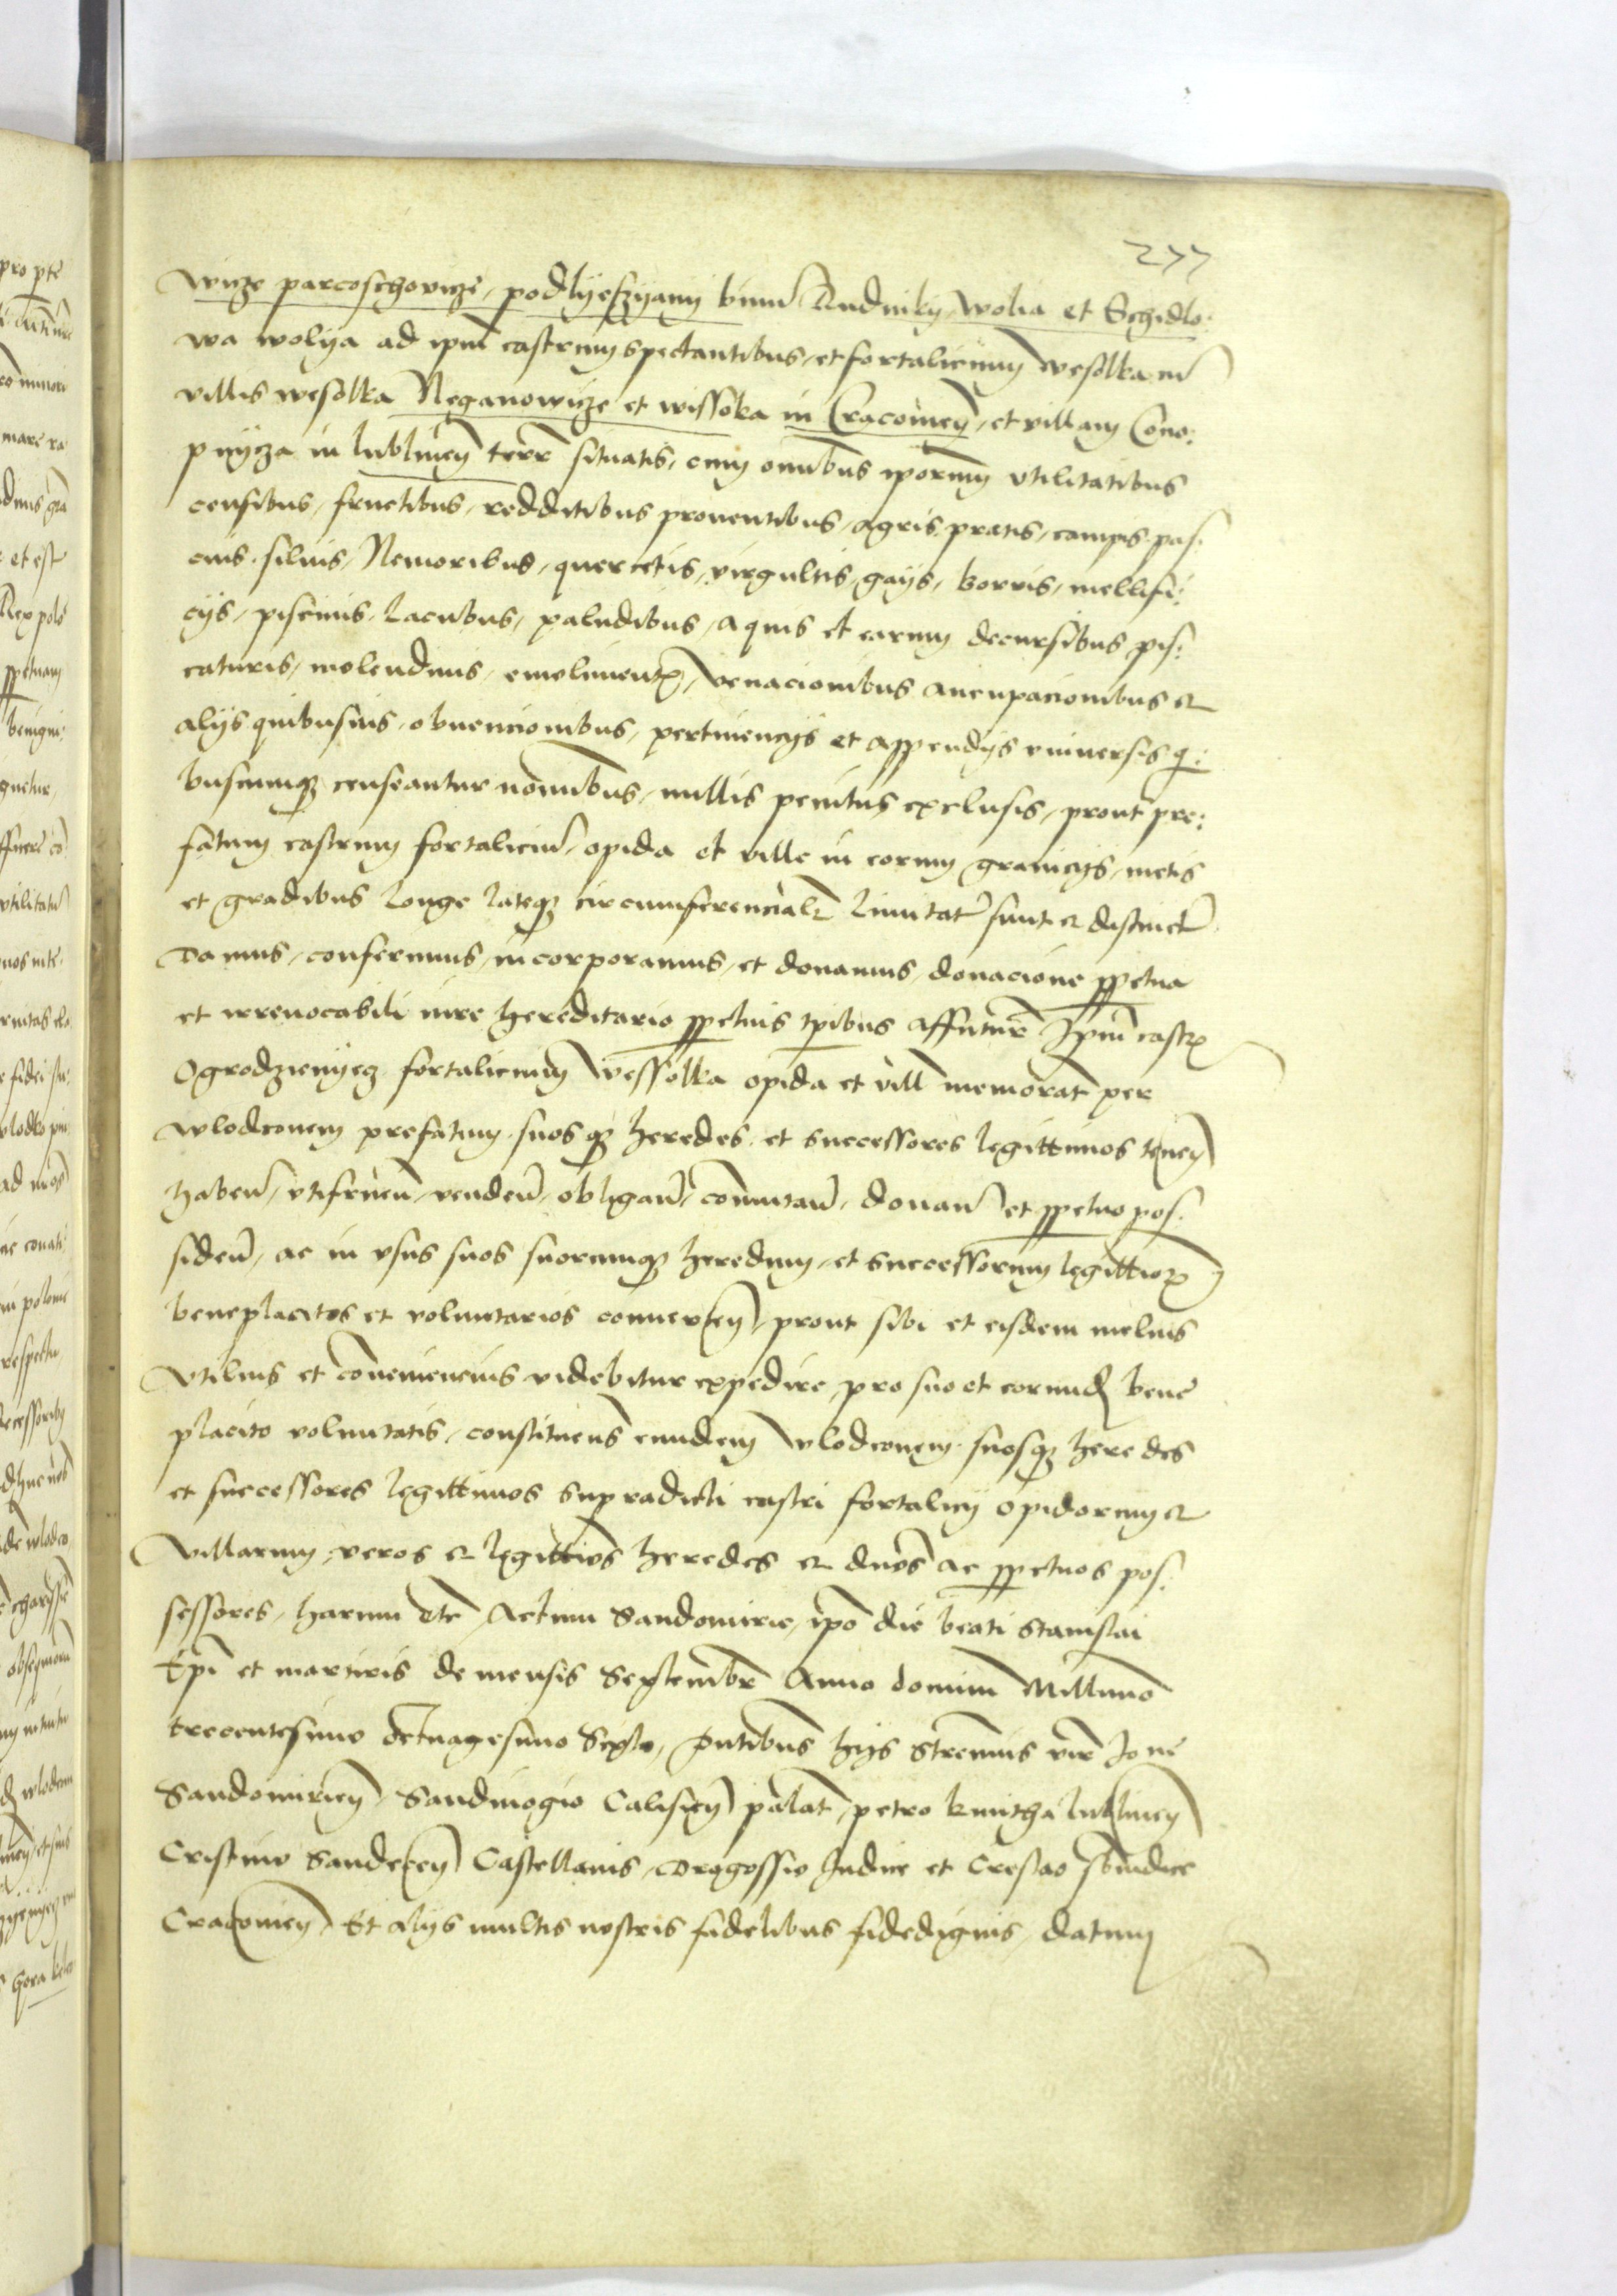 277
wicze parcoschovicze, podlyeszyany binu͞ Rudniky, wolia et Schidlo:
wa wolya ad ipm̄ castrum spectantibus, et fortalicium wesolka cu͞
villis wesolka Neganowicze et wissoka in Cracouien̄, et villam Cono:
pnycza in lublinen̄ terr̄ situatis, cum om̄ibus ipor̄um vtilitatibus
censibus, fructibus, redditibus prouentibus, agris, pratis, campis, pas:
cuis. siluis, Nemoribus, quercetis, virgultis, gays, borris, mellifi:
cys, piscinis, lacubus, paludibus, aquis et earum decursibus pis:
caturis, molendinis, emolimentꝝ, venacionibus aucupacionibus et
alys quibusuis, obuencionibus, pertinencys et appendys vniuersis q̄:
buscunqꝫ censeantur no͞minibus, nullis penitus exclusis, prout pre:
fatum castrum fortaliciu͞, opida et ville in eorum granicys, metis
et gradibus longe lateqꝫ circumferencial̄r limitat͞ sunt et distinct͞
Damus, conferimus, incorporamus, et donamus, donacione ꝑpetua
et irreuocabili iure hereditario ꝑpetuis tꝑibus affutur̄ Ipm̄ castrꝝ
Ogrodzienyecz fortalicium Vessolka opida et vill̄ memorat͞ per
wlodconem prefatum, suosqꝫ heredes, et successores legittimos tenen̄
haben̄, vtifruen̄, venden̄, obligan̄, co͞mutan̄, donan̄ et ꝑpetuo pos:
siden̄, ac in vsus suos suorumqꝫ heredum, et successorum legittioꝝ
beneplacitos et voluntarios conuerten̄, prout sibi et eisdem melius
vtilius et co͞ueniencius videbitur expedire, pro suo et eorund̄ bene
placito voluntatis, constituen̄s eundem wlodconem. suosqꝫ heredes
et successores legittimos supradicti castri fortalicy opidorum et
villarum, veros et legittīos heredes et dn̄os ac ꝑpetuos pos:
sessores, harum etc̄ Actum Sandomirie, ipō die beati Stanislai
Epī et martiris de mensis Septembr̄ Anno domini Millimo
trecentesimo octuagesimo Sexto, p̄ntibus hys strennuis vir̄ Jone
Sandomirien̄, Sandiuogio Calisien̄ palat͞, petro kmitha lublinen̄
Cristino Sandecen̄ Castellanis, Dragossio Judice et Creslao s̄biudice
Cracouien̄, Et alys multis nostris fidelibus fidedignis, datum